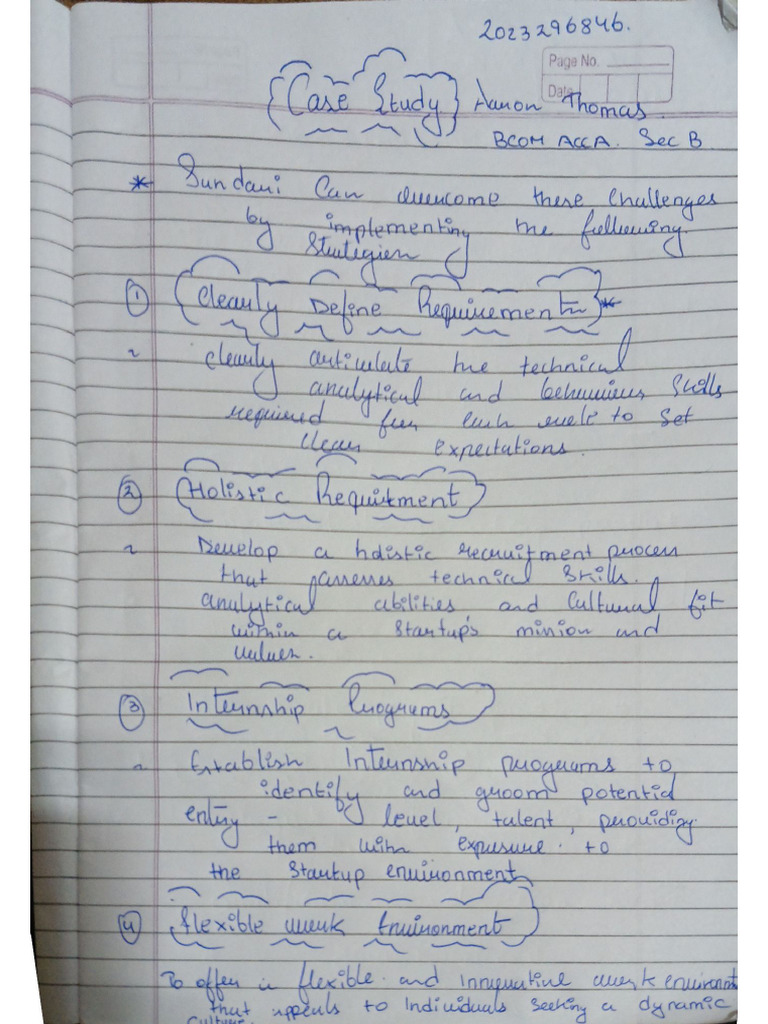 2023296846.
Page No.
Date
Case Study Aaron Thomas.
BCOM ACCA. Sec B
* Sundari Can overcome these Challenges
by implementing the following
Strategies
① Clearly Define Requirements *
~ clearly articulate the technical
analytical and behaviour skills
required for each role to set
clear expectations.
② Holistic Requitment
~ Develop a holistic recruitment process
that assesses technical skills.
analytical abilities and Cultural fit
within a Startup's mission and
values.
③ Internship Programs
~ Establish Internship programs to
identify and groom potential
entry - level, talent, providing
them with exposure. to
the Startup environment
④ flexible work Environment
To offer a flexible and innovative work environment
that appeals to Individuals Seeking a dynamic
culture.